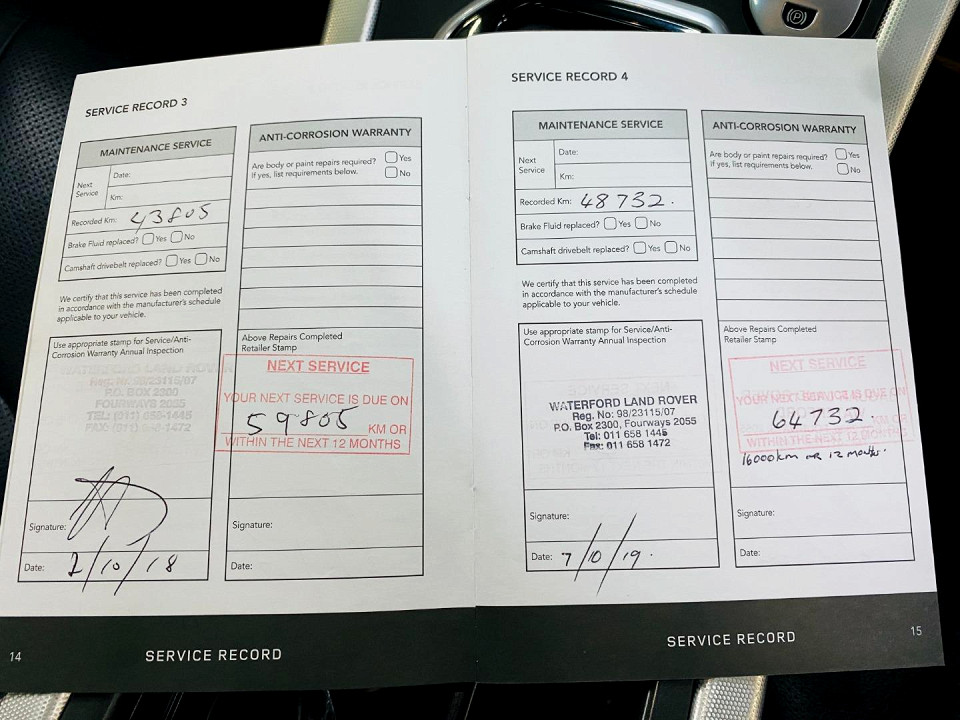 SERVICE RECORD 3
MAINTENANCE SERVICE
Next Service
Date:
Km:
Recorded Km: 43805
Brake Fluid replaced? Yes No
Camshaft drivebelt replaced? Yes No
We certify that this service has been completed
in accordance with the manufacturer's schedule
applicable to your vehicle.
Use appropriate stamp for Service/Anti-
Corrosion Warranty Annual Inspection
WATERFORD LAND ROVER
Reg. No: 98/23115/07
P.O. BOX 2300
FOURWAYS 2055
TEL: (011) 658-1445
FAX: (011) 658-1472
Signature:
Date: 2/10/18
ANTI-CORROSION WARRANTY
Are body or paint repairs required? Yes
If yes, list requirements below. No
Above Repairs Completed
Retailer Stamp
NEXT SERVICE
YOUR NEXT SERVICE IS DUE ON
59805 KM OR
WITHIN THE NEXT 12 MONTHS
Signature:
Date:
14
SERVICE RECORD
SERVICE RECORD 4
MAINTENANCE SERVICE
Next Service
Date:
Km:
Recorded Km: 48732.
Brake Fluid replaced? Yes No
Camshaft drivebelt replaced? Yes No
We certify that this service has been completed
in accordance with the manufacturer's schedule
applicable to your vehicle.
Use appropriate stamp for Service/Anti-
Corrosion Warranty Annual Inspection
WATERFORD LAND ROVER
Reg. No: 98/23115/07
P.O. Box 2300, Fourways 2055
Tel: 011 658 1445
Fax: 011 658 1472
Signature:
Date: 7/10/19.
ANTI-CORROSION WARRANTY
Are body or paint repairs required? Yes
If yes, list requirements below. No
Above Repairs Completed
Retailer Stamp
NEXT SERVICE
YOUR NEXT SERVICE IS DUE ON
64732. KM OR
WITHIN THE NEXT 12 MONTHS
16000km or 12 months.
Signature:
Date:
SERVICE RECORD
15